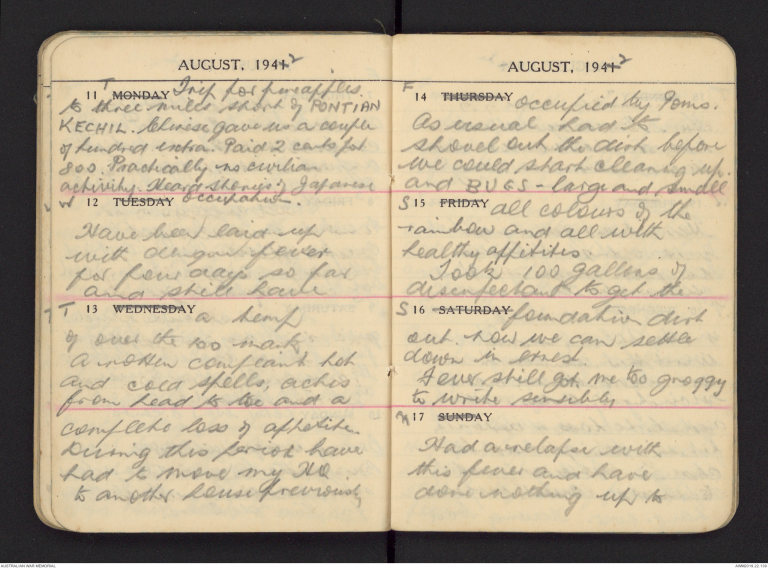 AUGUST, 1942
11 T MONDAY Trip for pineapples
to three miles short of PONTIAN
KECHIL. Chinese gave us a couple
of hundred extra. Paid 2 cents for
800. Practically no civilian
activity. Heard stories of Japanese
W 12 TUESDAY occupation.
Have been laid up
with dengue fever
for four days so far
and still have
T 13 WEDNESDAY a temp
of over the 100 mark
A rotten complaint hot
and cold spells, aches
from head to toe and a
complete loss of appetite.
During this period have
had to move my HQ
to another house previously
AUGUST, 1942
F 14 THURSDAY occupied by Poms.
As usual had to
shovel out the dirt before
we could start cleaning up.
and BUGS - large and small
S 15 FRIDAY all colours of the
rainbow and all with
healthy appitites.
Took 100 gallons of
disenfectant to get the
S 16 SATURDAY foundation dirt
out. Now we can settle
down in ernest.
Fever still got me too groggy
to write sensibly
17 SUNDAY
Had a relapse with
this fever and have
done nothing up to
AUSTRALIAN WAR MEMORIAL